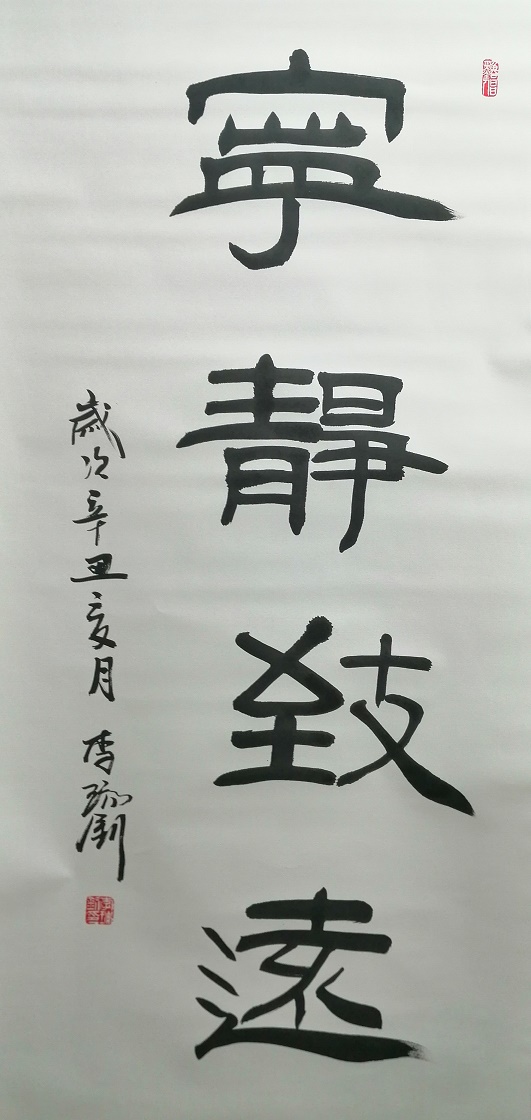 寧靜致遠
歲次辛丑亥月 李瑜釗